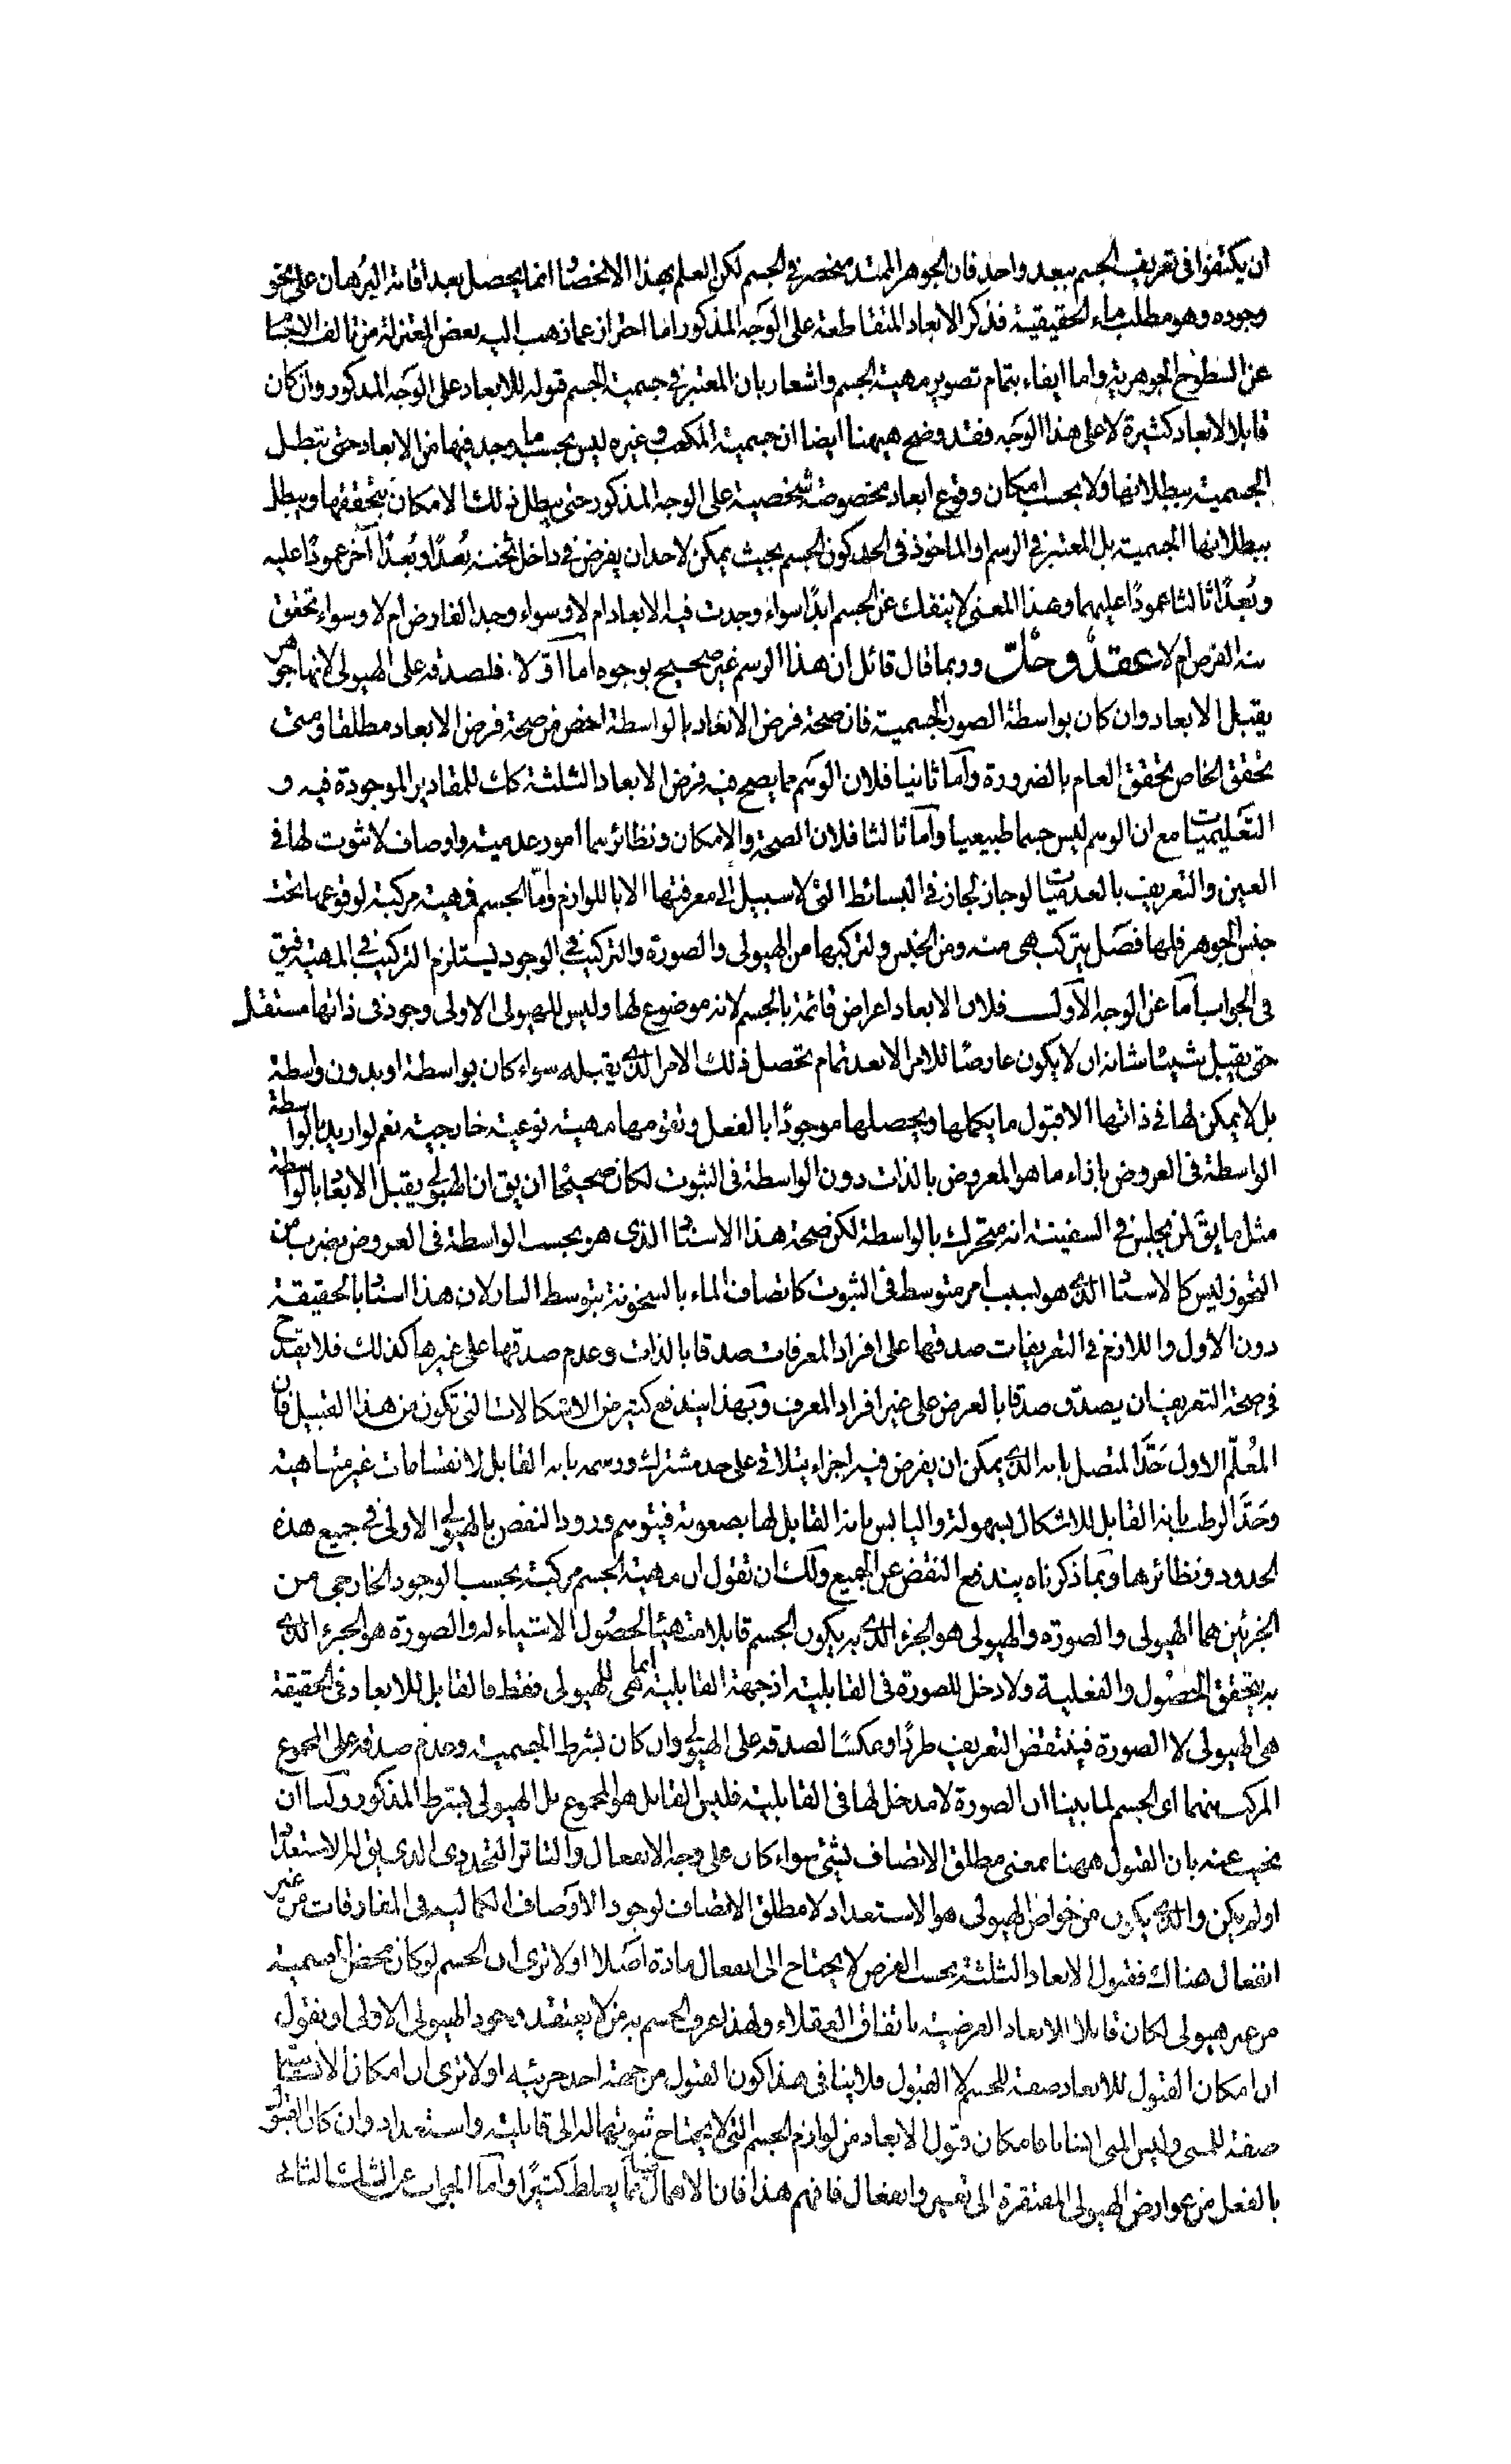 ان يكتفوا فى تعريف الجسم ببعد واحد فان الجوهر الممتد منحصر فى الجسم لكن العلم بهذا الانحصار انما يحصل بعد اقامة البرهان على نحو
وجوده وهو مطلب ماء الحقيقية فذكر الابعاد المتقاطعة على الوجه المذكور اما احتراز عما ذهب اليه بعض المعتزلة من تالف الاجسا
عن السطوح الجوهرية واما ايفاء بتمام تصوير مهية الجسم واشعار بان المعتبر فى جسمية الجسم قوله للابعاد على الوجه المذكور وان كان
قابلا لابعاد كثيرة لا على هذا الوجه فقد وضح هيهنا ايضا ان جسمية المكعب وغيره ليس بحسب ما يوجد فيها من الابعاد حتى تبطل
الجسمية ببطلانها ولا بحسب امكان وقوع ابعاد مخصوصة شخصية على الوجه المذكور حتى يبطل ذلك الامكان بتحققها ويبطل
ببطلانها الجسمية بل المعتبر فى الرسم او الماخوذ فى الحد كون الجسم بحيث يمكن لاحد ان يفرض فى داخل ثخنه بُعدًا وبُعدًا آخر عمودًا عليه
وبُعدًا ثالثا عمودًا عليهما وهذا المعنى لا ينفك عن الجسم ابدًا سواء وجدت فيه الابعاد ام لا وسواء وجد الفارض ام لا وسواء تحقق
منه الفرض ام لا عقدٌ وحلٌّ وربما قال قائل ان هذا الرسم غير صحيح بوجوه اما اولا فلصدقه على الهيولى لانها جوهر
يقبل الابعاد وان كان بواسطة الصور الجسمية فان صحة فرض الابعاد بالواسطة اخص من صحة فرض الابعاد مطلقا ومتى
تحقق الخاص تحقق العام بالضرورة واما ثانيا فلان الوهم مما يصح فيه فرض الابعاد الثلثة كك للمقادير الموجودة فيه و
التعليميات مع ان الوهم ليس جسما طبيعيا واما ثالثا فلان الصحة والامكان ونظائرهما امور عدمية واوصاف لا ثبوت لها فى
العين والتعريف بالعدميات لو جاز لجاز فى البسائط التى لا سبيل الى معرفتها الا باللوازم واما الجسم فمهية مركبة لوقوعها تحت
جنس الجوهر فلها فصل يتركب هى منه ومن الجنس ولتركبها من الهيولى والصورة والتركيب فى الوجود يستلزم التركيب فى المهية فيق
فى الجواب اما عن الوجه الاول فلان الابعاد اعراض قائمة بالجسم لانه موضوع لها وليس للهيولى الاولى وجود فى ذاتها مستقل
حتى يقبل شيئا شانه ان لا يكون عارضًا للامر الا بعد تمام تحصل ذلك الامر الذى يقبله سواء كان بواسطة او بدون واسطة
بل لا يمكن لها فى ذاتها الا قبول ما يكملها ويحصلها موجودًا بالفعل وتقومها مهية نوعية خارجية نعم لو اريد بالواسطة
الواسطة فى العروض بازاء ما هو المعروض بالذات دون الواسطة فى الثبوت لكان صحيحًا ان يق ان الهيولى يقبل الابعا بالواسطة
مثل ما يق لمن يجلس فى السفينة انه متحرك بالواسطة لكن صحة هذا الاسنا الذى هو بحسب الواسطة فى العروض بضرب من
التجوز ليس كالاسنا الذى هو بسبب امر متوسط فى الثبوت كاتصاف الماء بالسخونة بتوسط النار لان هذا اسنا بالحقيقة
دون الاول واللازم فى التعريفات صدقها على افراد المعرفات صدقا بالذات وعدم صدقها على غيرها كذلك فلا يقدح
فى صحة التعريف ان يصدق صدقا بالعرض على غير افراد المعرف وبهذا يندفع كثير من الاشكالات التى تكون من هذا القبيل فان
المُعلّم الاول حَدَّ المتصل بانه الذى يمكن ان يفرض فيه اجزاء يتلاقى على حد مشترك ورسمه بانه القابل لانقسامات غير متناهية
وحَدَّ الرطب بانه القابل للاشكال بسهولة واليابس بانه القابل لها بصعوبة فيتوهم ورود النقض بالهيولى الاولى فى جميع هذه
الحدود ونظائرها وبما ذكرناه يندفع النقض عن الجميع ولك ان تقول ان مهية الجسم مركبة بحسب الوجود الخارجى من
الجزئين هما الهيولى والصورة والهيولى هو الجزء الذى به يكون الجسم قابلا متهيئا لحصول الاشياء له والصورة هو الجزء الذى
به يتحقق الحصُول والفعلية ولا دخل للصورة فى القابلية اذ جهة القابلية انما هى للهيولى فقط فالقابل للابعاد فى الحقيقة
هى الهيولى لا الصورة فينتقض التعريف طردًا وعكسًا لصدقه على الهيولى وان كان بشرط الجسمية وعدم صدقه على المجموع
المركب منهما اى الجسم لما بينا ان الصورة لا مدخل لها فى القابلية فليس القابل هو المجموع بل الهيولى بشرط المذكور ولنا ان
نجيب عنه بان القبول ههنا بمعنى مطلق الاتصاف بشئ سواء كان على وجه الانفعال والتاثر التجددى الذى يق له الاستعدا
او لم يكن والذى يكون من خواص الهيولى هو الاستعداد لا مطلق الاتصاف لوجود الاوصاف الكمالية فى المفارقات من غير
انفعال هناك فقبول الابعاد الثلثة بحسب الفرض لا يحتاج الى انفعال مادة اصلا اولا ترى ان الجسم لو كان محض الجسمية
من غير هيولى لكان قابلا للابعاد الفرضية باتفاق العقلاء ولهذا عرف الجسم به من لا يعتقد وجود الهيولى الاولى او نقول
ان امكان القبول للابعاد صفة للجسم لا القبول فلا ينافى هذا كون القبول من جهة احد جزئيه اولا ترى ان امكان الانسا
صفة للمنى وليس المنى انسانا فامكان قبول الابعاد من لوازم الجسم التى لا يحتاج ثبوتها له الى قابلية واستعداد وان كان القبول
بالفعل من عوارض الهيولى المفتقرة الى تغير وانفعال فافهم هذا فان الاهمال فيها مما يغلط كثيرًا واما الجواب عن الثانى